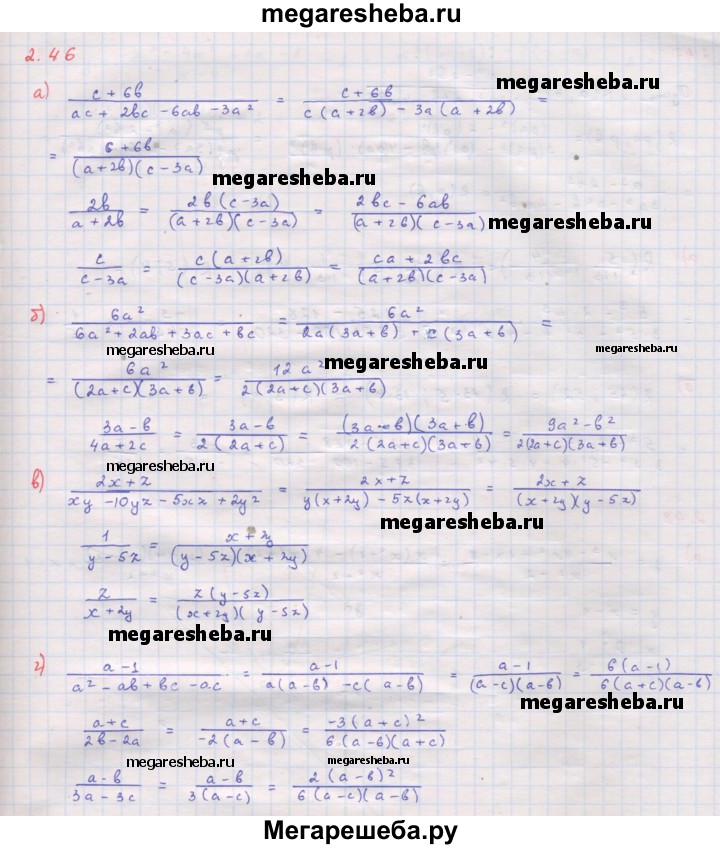 megaresheba.ru
2.46
а) (c + 6b)/(ac + 2bc - 6ab - 3a²) = (c + 6b)/(c(a + 2b) - 3a(a + 2b)) =
megaresheba.ru
= (6 + 6b)/((a + 2b)(c - 3a))
megaresheba.ru
2b/(a + 2b) = 2b(c - 3a)/((a + 2b)(c - 3a)) = (2bc - 6ab)/((a + 2b)(c - 3a))
megaresheba.ru
c/(c - 3a) = c(a + 2b)/((c - 3a)(a + 2b)) = (ca + 2bc)/((a + 2b)(c - 3a))
б) 6a²/(6a² + 2ab + 3ac + bc) = 6a²/(2a(3a + b) + c(3a + b)) =
megaresheba.ru megaresheba.ru
megaresheba.ru
= 6a²/((2a + c)(3a + b)) = 12a²/(2(2a + c)(3a + b))
megaresheba.ru
(3a - b)/(4a + 2c) = (3a - b)/(2(2a + c)) = (3a - b)(3a + b)/(2(2a + c)(3a + b)) = (9a² - b²)/(2(2a + c)(3a + b))
megaresheba.ru
в) (2x + z)/(xy - 10yz - 5xz + 2y²) = (2x + z)/(y(x + 2y) - 5z(x + 2y)) = (2x + z)/((x + 2y)(y - 5z))
megaresheba.ru
1/(y - 5z) = (x + 2y)/((y - 5z)(x + 2y))
z/(x + 2y) = z(y - 5z)/((x + 2y)(y - 5z))
megaresheba.ru
г) (a - 1)/(a² - ab + bc - ac) = (a - 1)/(a(a - b) - c(a - b)) = (a - 1)/((a - c)(a - b)) = 6(a - 1)/(6(a + c)(a - b))
megaresheba.ru
(a + c)/(2b - 2a) = (a + c)/(-2(a - b)) = -3(a + c)²/(6(a - b)(a + c))
megaresheba.ru megaresheba.ru
(a - b)/(3a - 3c) = (a - b)/(3(a - c)) = 2(a - b)²/(6(a - c)(a - b))
Мегарешеба.ру